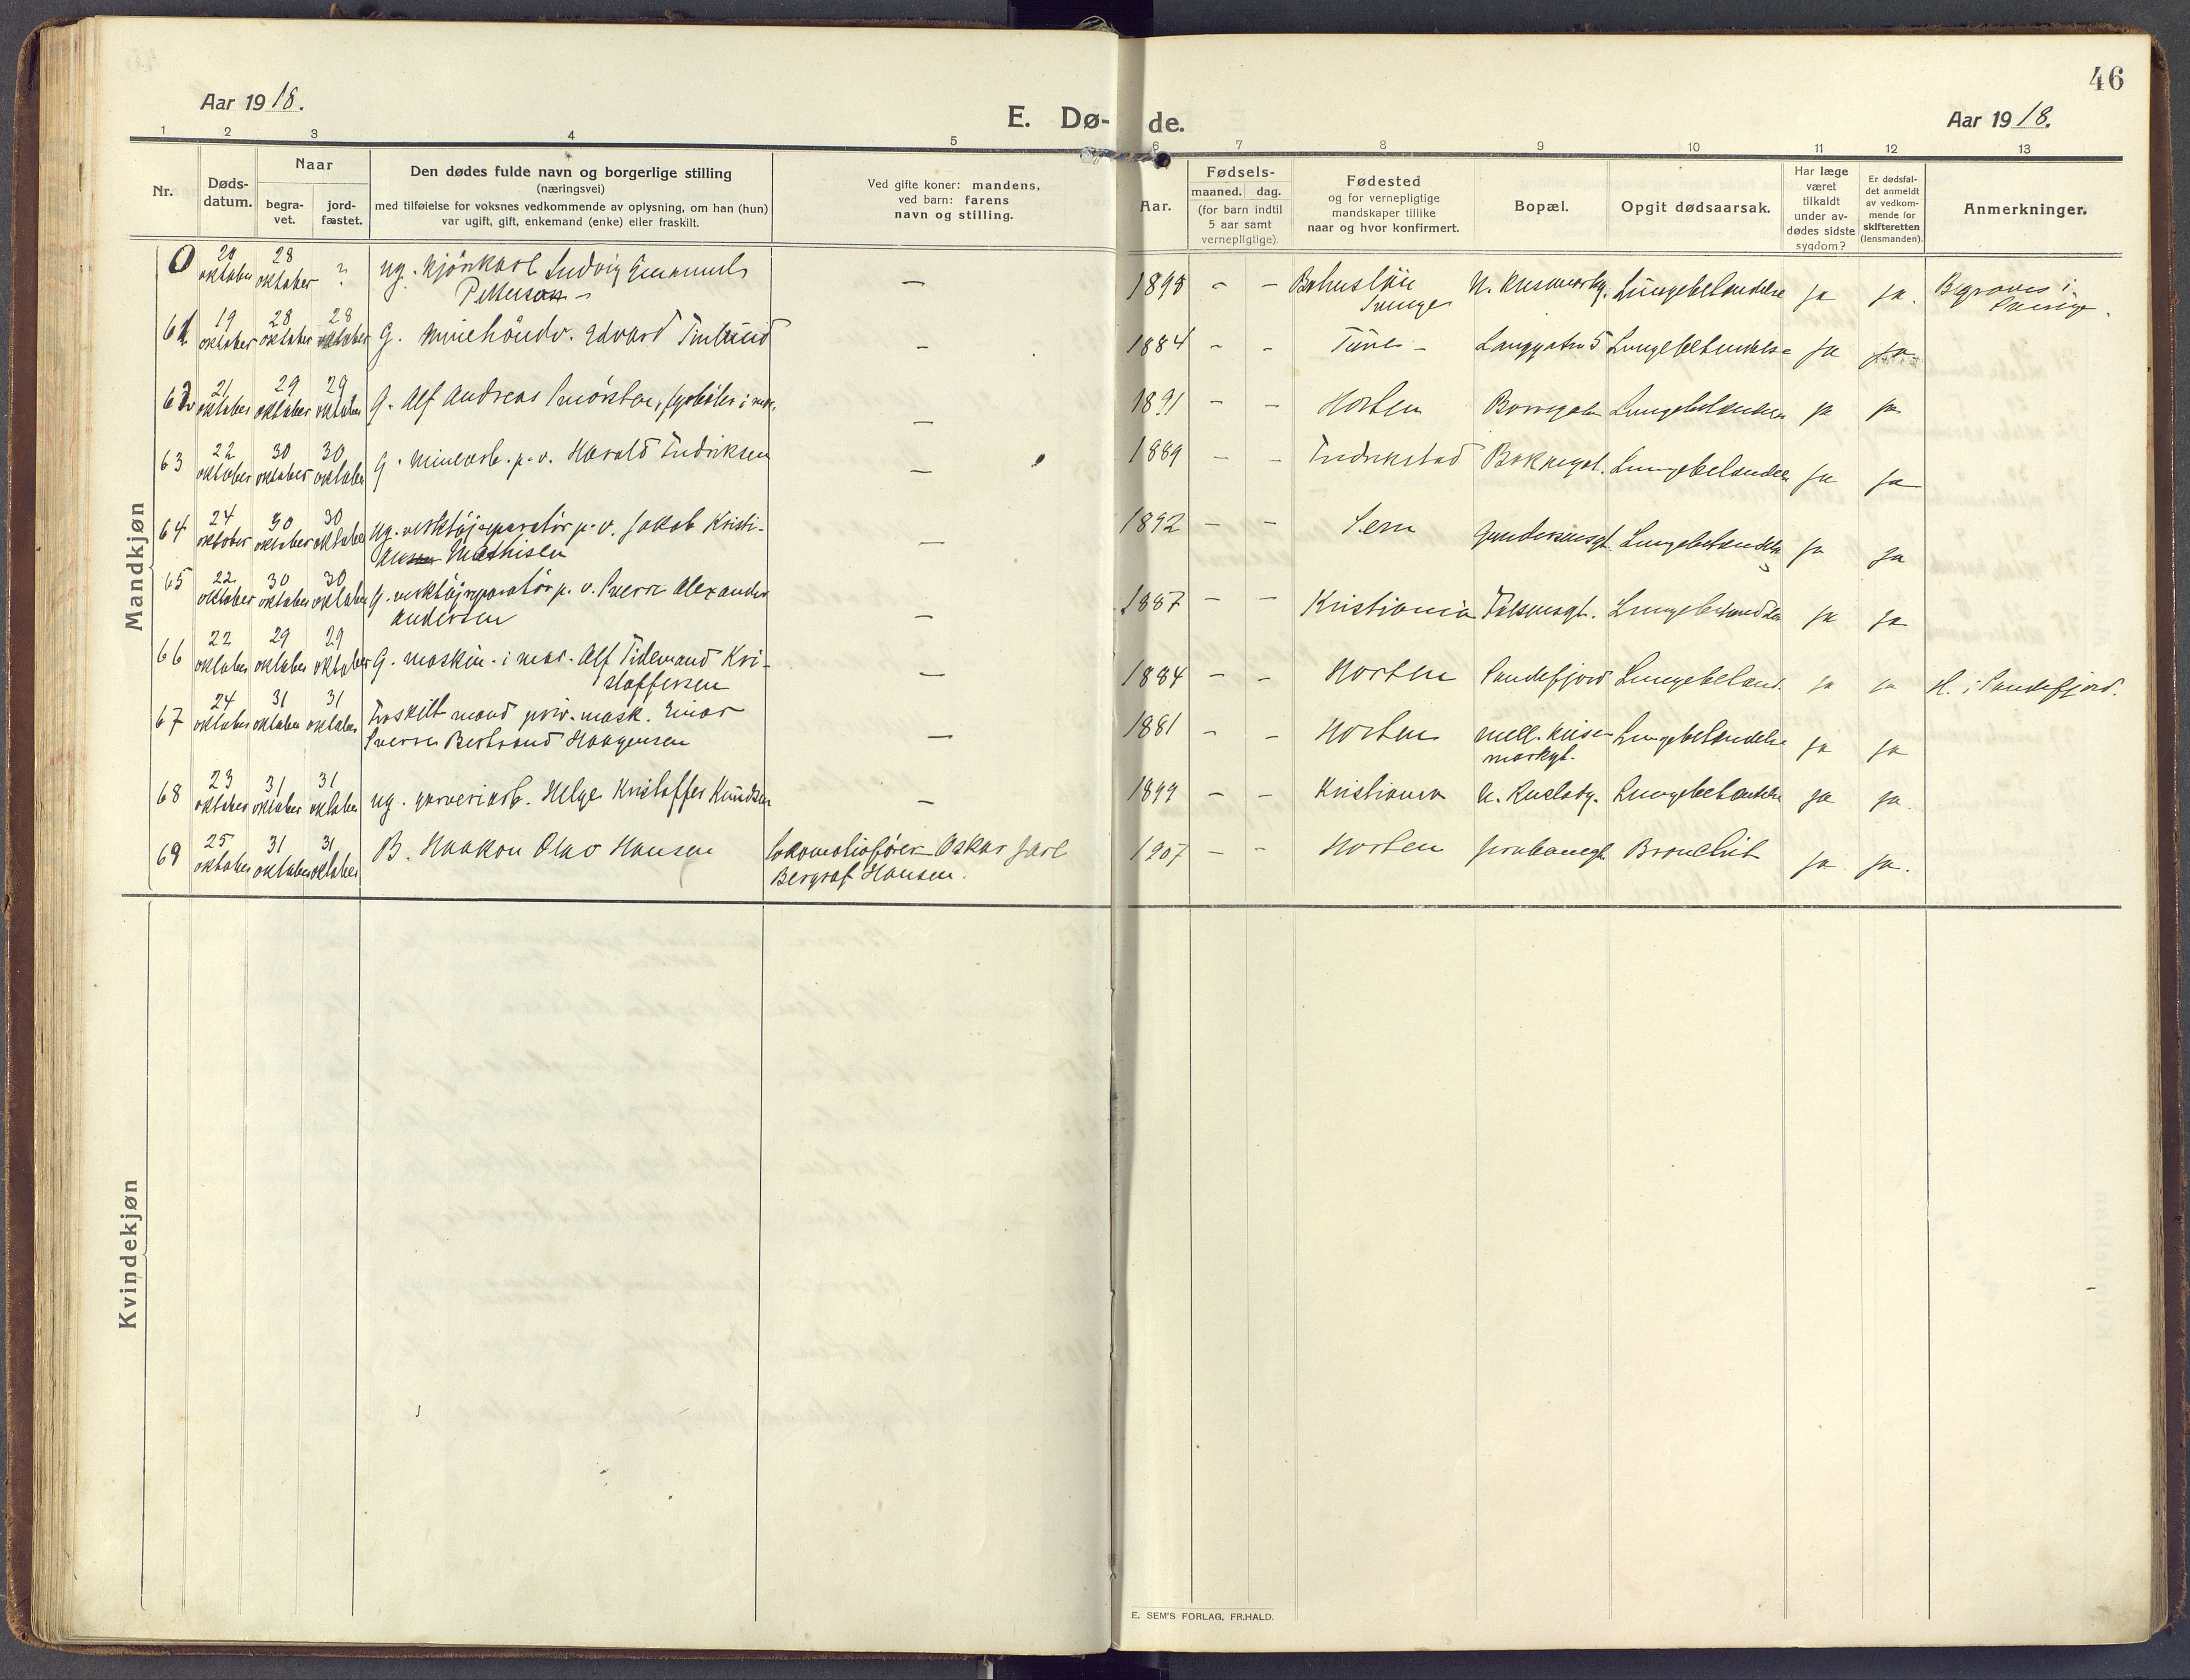 46
Aar 1918.
E. Dø-
de.
Aar 1918.
1 2 3 4 5 6 7 8 9 10 11 12 13
Nr.
Døds-
datum.
Naar
begra-
vet.
jord-
fæstet.
Den dødes fulde navn og borgerlige stilling
(næringsvei)
med tilføielse for voksnes vedkommende av oplysning, om han (hun)
var ugift, gift, enkemand (enke) eller fraskilt.
Ved gifte koner: mandens,
ved barn: farens
navn og stilling.
Aar.
Fødsels-
maaned. dag.
(for barn indtil
5 aar samt
vernepligtige)
Fødested
og for vernepligtige
mandskaper tillike
naar og hvor konfirmert.
Bopæl.
Opgit dødsaarsak.
Har læge
været
tilkaldt
under av-
dødes sidste
sygdom?
Er dødsfal-
det anmeldt
av vedkom-
mende for
skifteretten
(lensmanden).
Anmerkninger.
Mandkjøn
0 oktober 28 oktober ? ug. Ludvig Emanuel
Petterson - — - - Lungebetændelse ja ja. Begraves i
61 19 oktober 28 oktober 28 oktober G. Edvard — 1884 - - Tune - Langgaten 5 Lungebetændelse ja ja
62 21 oktober 29 oktober 29 oktober G. Alf Andreas fyrbøter i mar. — 1891 - - Horten Borregaten Lungebetændelse ja ja
63 22 oktober 30 oktober 30 oktober G. minearb. p. v. Harald Fredriksen — 1889 - - Fredrikstad Bakkegat. Lungebetændelse ja ja
64 24 oktober 30 oktober 30 oktober ug. verktøjreparatør p. v. Jakob Kristi-
Mathisen — 1892 - - Sem Gundersensgt. Lungebetændelse ja ja
65 22 oktober 30 oktober 30 oktober G. verktøjreparatør p. v. Sverre Alexander
Andersen — 1887 - - Kristiania Falsensgt. Lungebetændelse ja ja
66 22 oktober 29 oktober 29 oktober G. maskin. i mar. Alf Tidemand Kri-
stoffersen — 1884 - - Horten Sandefjord Lungebetænd. ja ja H. i Sandefjord.
67 24 oktober 31 oktober 31 oktober Fraskilt mand priv. mask. Einar
Sverre Bertrand Haagensen — 1881 - - Horten mell.
markgt. Lungebetændelse ja ja
68 23 oktober 31 oktober 31 oktober ug. garveriarb. Helge Kristoffer Knudsen — 1899 - - Kristiania Lungebetændelse ja ja.
69 25 oktober 31 oktober 31 oktober B. Haakon Olav Hansen Lokomotivfører Oskar Jarl
Bergraf Hansen. 1907 - - Horten Jernbanegt. Bronchit ja ja.
Kvindekjøn
E. SEM'S FORLAG, FR.HALD.